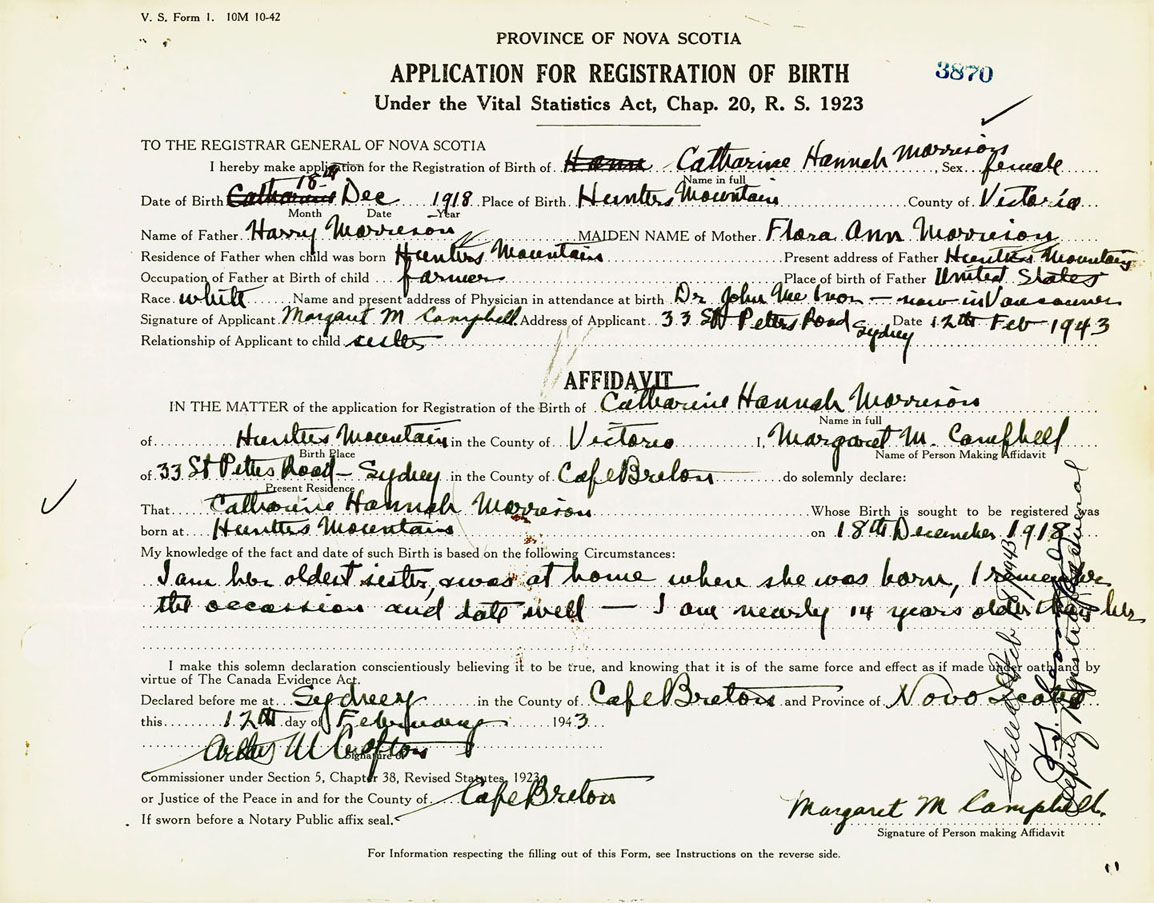 V. S. Form 1. 10M 10-42
PROVINCE OF NOVA SCOTIA
APPLICATION FOR REGISTRATION OF BIRTH
3870
Under the Vital Statistics Act, Chap. 20, R. S. 1923
TO THE REGISTRAR GENERAL OF NOVA SCOTIA
I hereby make application for the Registration of Birth of Catharine Hannah Morrison, Sex female
Name in full
Date of Birth 18th Dec 1918 Place of Birth Hunters Mountain County of Victoria
Month Date Year
Name of Father Harry Morrison MAIDEN NAME of Mother Flora Ann Morrison
Residence of Father when child was born Hunters Mountain Present address of Father Hunters Mountain
Occupation of Father at Birth of child farmer Place of birth of Father United States
Race white Name and present address of Physician in attendance at birth Dr John Mc Ivor — now in Vancouver
Signature of Applicant Margaret M Campbell Address of Applicant 33 St Peters Road Sydney Date 12th Feb 1943
Relationship of Applicant to child sister
AFFIDAVIT
IN THE MATTER of the application for Registration of the Birth of Catharine Hannah Morrison
Name in full
of Hunters Mountain in the County of Victoria I, Margaret M. Campbell
Birth Place Name of Person Making Affidavit
of 33 St Peters Road – Sydney in the County of Cape Breton do solemnly declare:
Present Residence
That Catharine Hannah Morrison Whose Birth is sought to be registered was
born at Hunters Mountain on 18th December 1918
My knowledge of the fact and date of such Birth is based on the following Circumstances:
I am her oldest sister, & was at home where she was born, I remember
the occassion and date well — I am nearly 14 years older than her
I make this solemn declaration conscientiously believing it to be true, and knowing that it is of the same force and effect as if made under oath and by
virtue of The Canada Evidence Act.
Declared before me at Sydney in the County of Cape Breton and Province of Nova Scotia
this 12th day of February 1943
Signature of
Commissioner under Section 5, Chapter 38, Revised Statutes, 1923
or Justice of the Peace in and for the County of Cape Breton
If sworn before a Notary Public affix seal.
Margaret M Campbell
Signature of Person making Affidavit
For Information respecting the filling out of this Form, see Instructions on the reverse side.
Filed Feb 1943
Deputy Registrar General